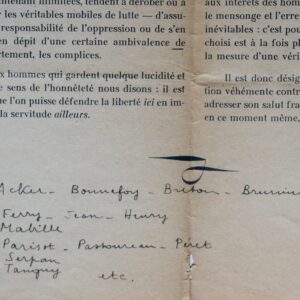 maintenant illimitées, tendent à dérober ou à
r les véritables mobiles de lutte — d'assu-
responsabilité de l'oppression ou de s'en
en dépit d'une certaine ambivalence de
rtement, les complices.
x hommes qui gardent quelque lucidité et
e sens de l'honnêteté nous disons : il est
que l'on puisse défendre la liberté ici en im-
la servitude ailleurs.
aux intérêts des hom
le mensonge et l'erre
inévitables : c'est pou
choisi est à la fois p
la mesure d'une vérit
Il est donc désig
tion véhémente contr
adresser son salut fra
en ce moment même.
Acker - Bonnefoy - Breton - Brunius
Ferry - Jean - Henry
Mabille
Parisot - Pastoureau - Péret
Serpan
Tanguy
etc.